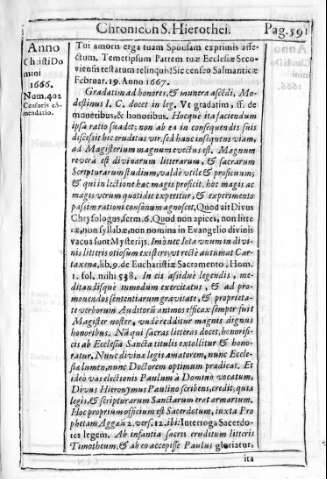 Chronicon S. Hierothei. Pag. 591
Anno
Christi Do
mini
1666.
Num. 402
Censuris cō-
mendatio.
Tot amorn erga tuam Sponsam exprimis affe-
ctum. Temetipsum Patrem tuæ Ecclesiæ Secco-
viensis testatum relinquit; Sic censeo Salmanticæ
Februar. 19. Anno 1667.
Gradatim ad honores, & munera ascēdi, Mo-
destinus I. C. docet in leg. Vt gradatim, ff. de
moneribus, & honoribus. Hocquè ita faciendum
ipsa ratio suadet; non ab ea in consequendis suis
discessit hic eruditus vir, sed hanc insequens viam,
ad Magisterium magnum evectus est. Magnum
revera est divinarum litterarum, & sacrarum
Scripturarum studium, valdè vtile & proficuum;
& qui in lectione hac magis proficit, hoc magis ac
magis verum quotidie experitur, & experimento
passim rationi consonum agnoscet, Quod ait Divus
Chrysologus, serm. 6. Quod non apices, non litte
ræ, non syllabæ, non nomina in Evangelio divinis
vacua sunt Mysterijs. Imò nec Iota vnum in divi-
nis litteris otiosum existere; vt rectè autumat Car-
taxena, lib. 9. de Eucharistiæ Sacramento, Hom.
1. fol. mihi 538. In eis assiduè legendis, me-
ditandisque summodum exercitatus, & ad pro-
monendos sententiarum gravitate, & proprieta-
te verborum Auditorū animos efficax semper fuit
Magister noster, vndè redditur magnis dignus
honoribus. Nā qui sacras litteras docet, honorifi-
cis ab Ecclesia Sancta titulis extollitur & hono-
ratur. Nunc divinæ legis amatorem, nunc Eccle-
siæ lumen, nunc Doctorem optimum prædicat. Et
ideò vas electionis Paulum à Domino vocatum.
Divus Hieronymus Paulino scribens, credit; quia
legis, & scripturarum Sanctarum erat armarium.
Hoc proprium officium est Sacerdotum, iuxta Pro
phetam Aggæi 2. vers. 12. ibi: Interroga Sacerdo-
tes legem. Ab infantia sacris eruditum litteris
Timotheum, & ab eo accepisse Paulus gloriatur,
ita